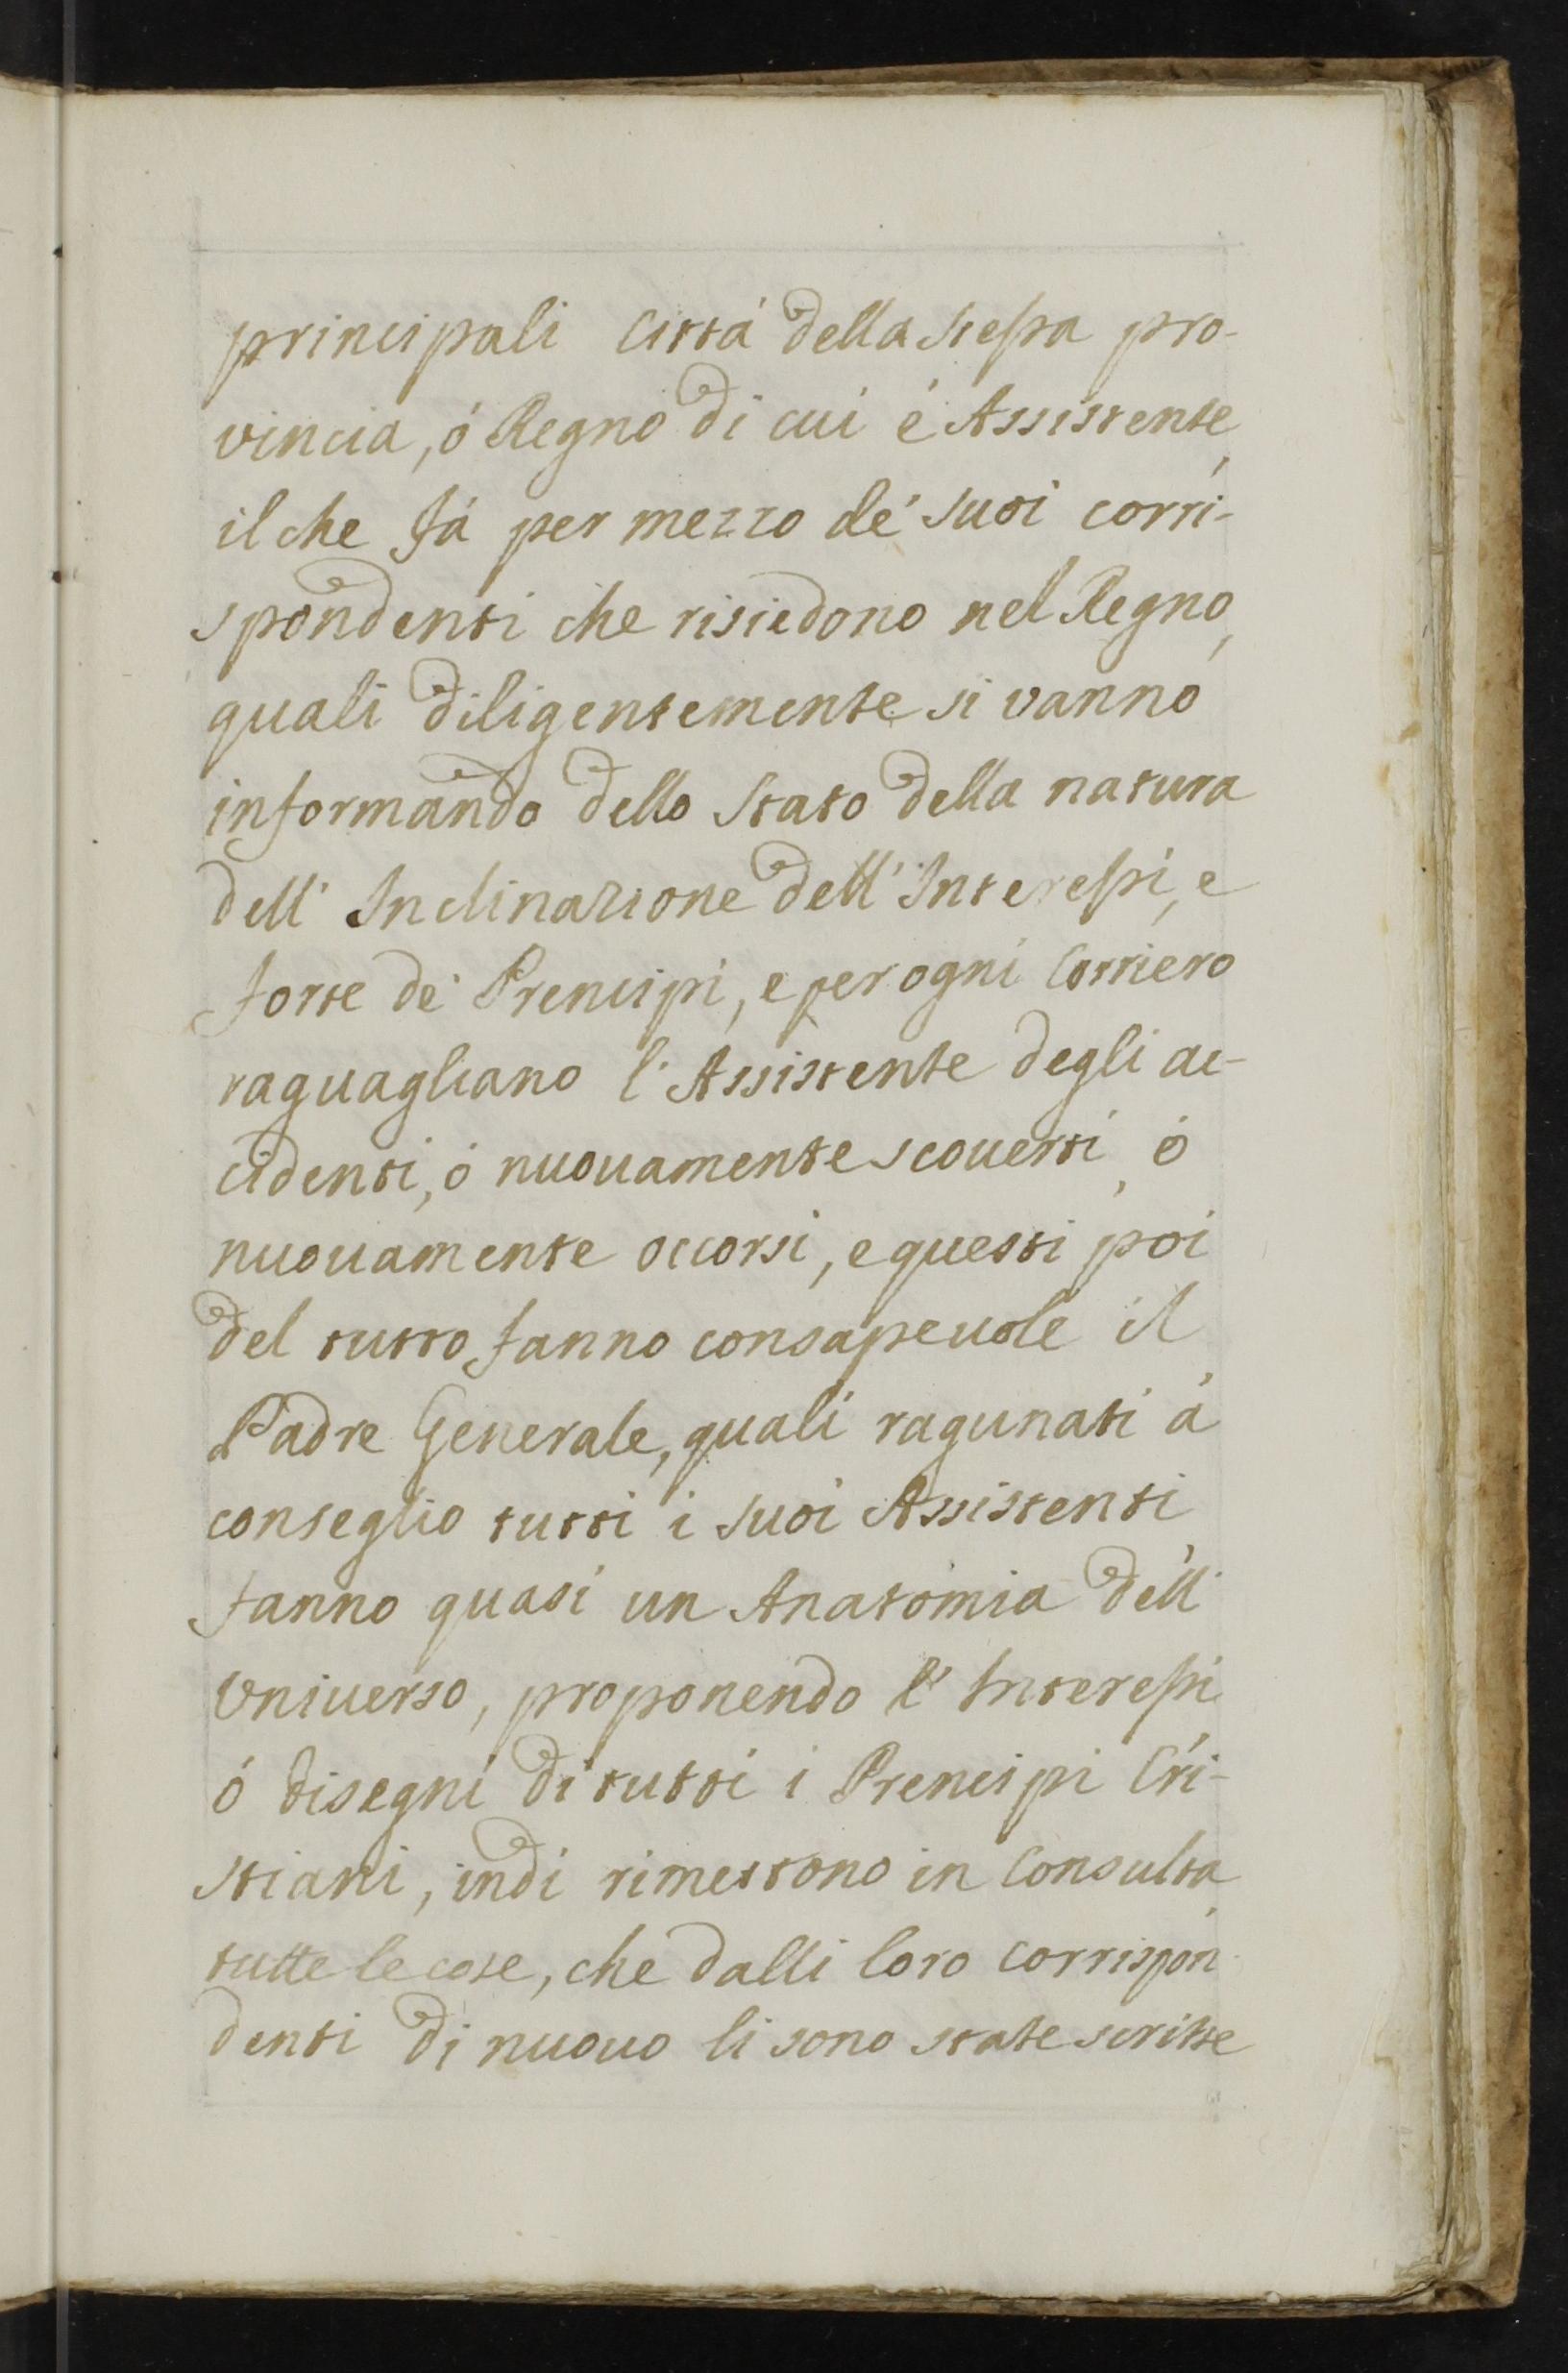 principali Cittá della stessa pro-
vincia, ó Regno di cui é Assistente,
il che fá per mezzo de' suoi corri-
spondenti che risiedono nel Regno,
quali diligentemente si vanno
informando dello stato della natura
dell' Inclinazione dell' Interessi, e
forze de' Prencipi, e per ogni Corriero
raguagliano l' Assistente degli ac-
cidenti, ó nuouamente scouerti, ó
nuouamente occorsi, e questi poi
del tutto fanno consapeuole il
Padre Generale, quali ragunati á
conseglio tutti i suoi Assistenti
fanno quasi un Anatomia dell'
Vniuerso, proponendo l' Interessi
ó disegni di tutti i Prencipi Cri-
stiani, indi rimettono in Consulta,
tutte le cose, che dalli loro corrispon-
denti di nuouo li sono state scritte